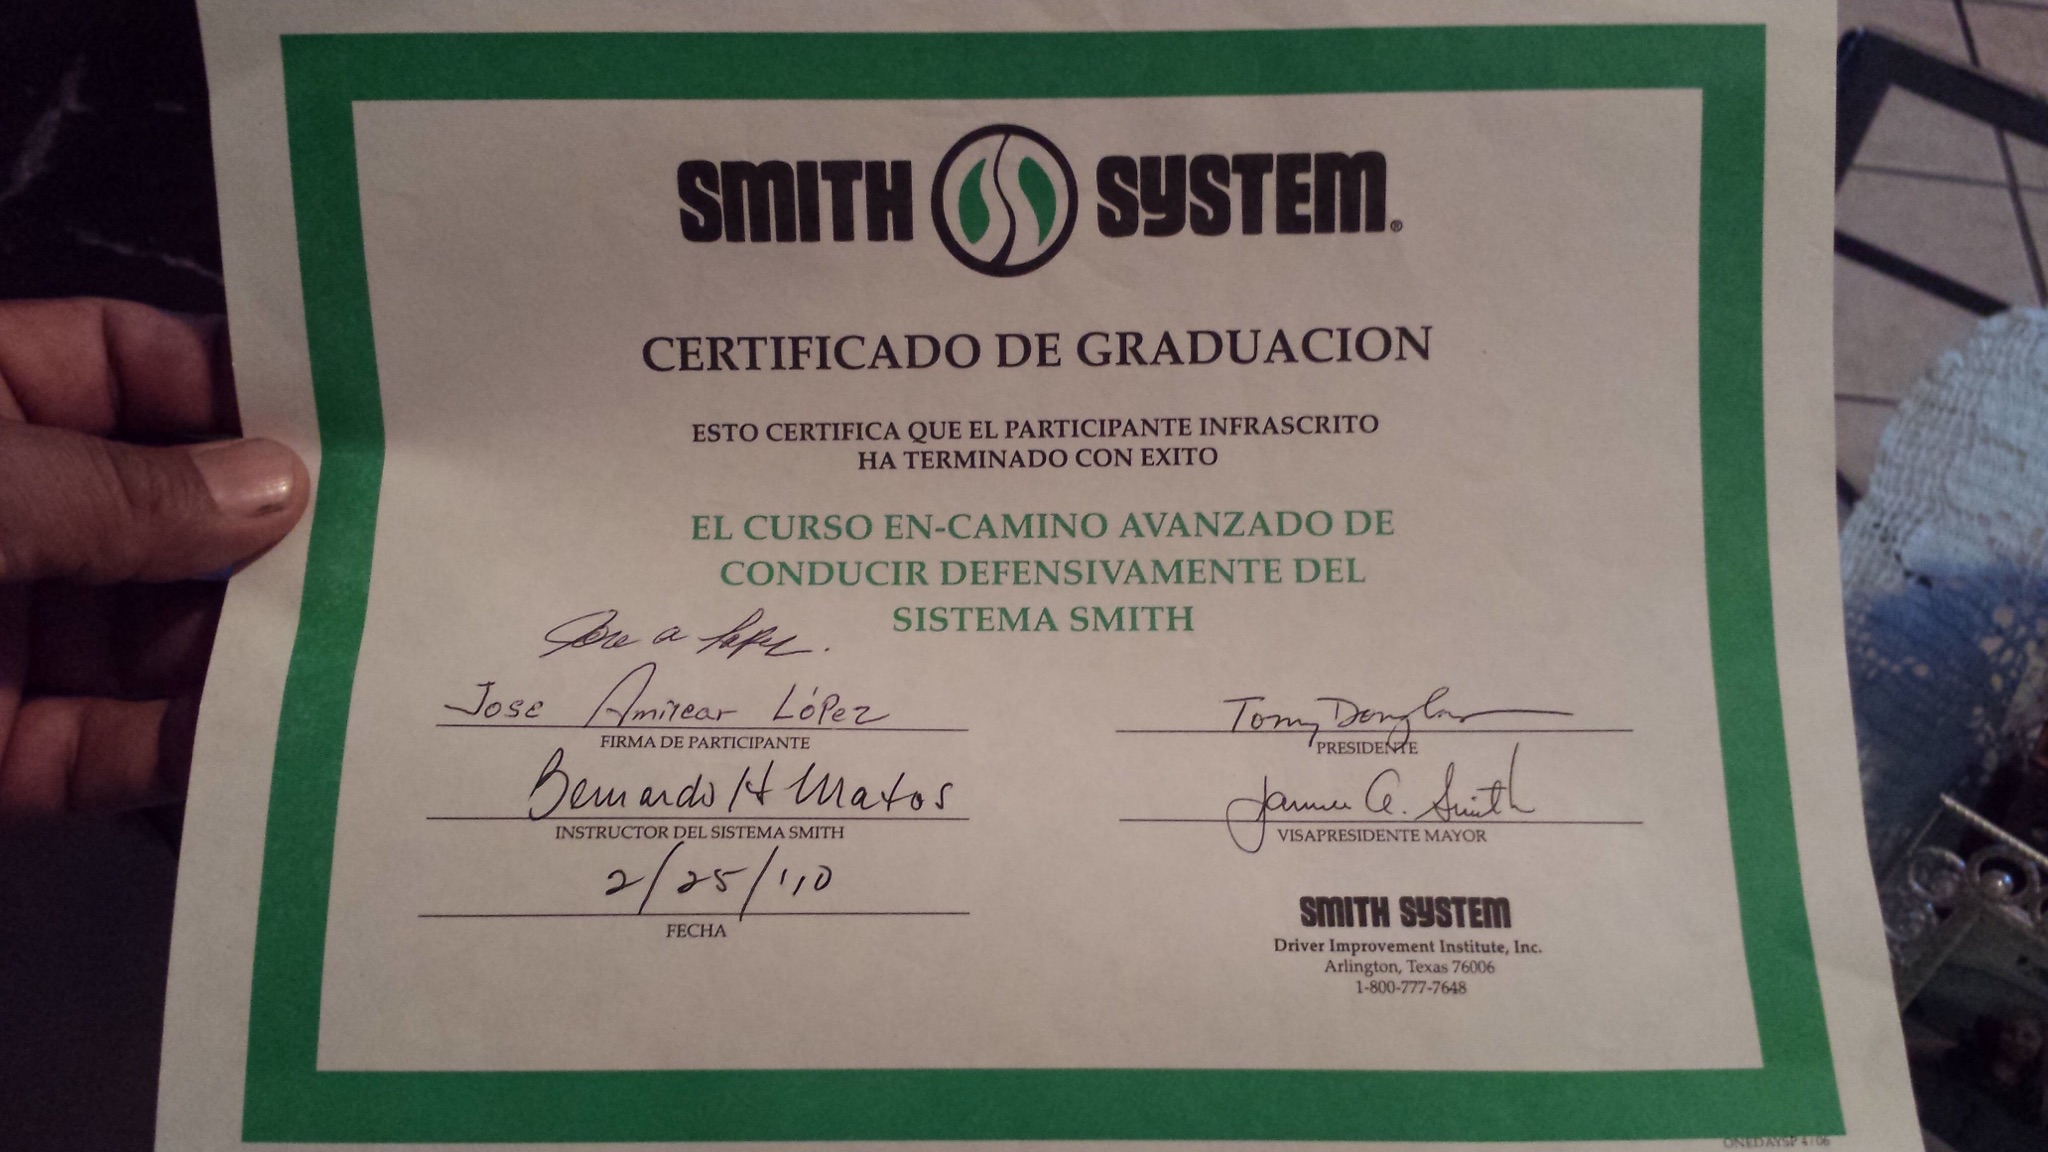 SMITH SYSTEM®
CERTIFICADO DE GRADUACION
ESTO CERTIFICA QUE EL PARTICIPANTE INFRASCRITO
HA TERMINADO CON EXITO
EL CURSO EN-CAMINO AVANZADO DE
CONDUCIR DEFENSIVAMENTE DEL
SISTEMA SMITH
Jose a Lopez.
Jose Amilcar López
FIRMA DE PARTICIPANTE
Tony Douglas
PRESIDENTE
Bernardo H Matos
INSTRUCTOR DEL SISTEMA SMITH
James A. Smith
VISAPRESIDENTE MAYOR
2/25/10
FECHA
SMITH SYSTEM
Driver Improvement Institute, Inc.
Arlington, Texas 76006
1-800-777-7648
ONEDAYSP 4/06